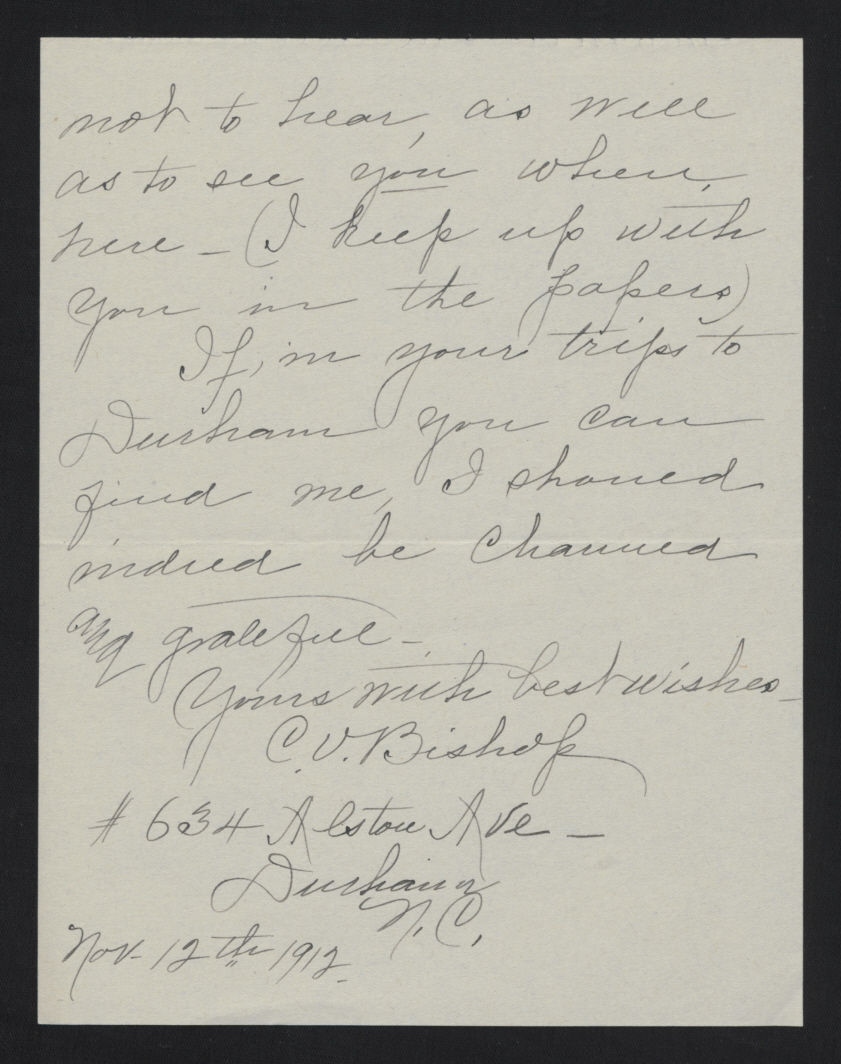 not to hear, as well
as to see you when,
here - (I keep up with
you in the papers)
If, in your trips to
Durham you can
find me, I should
indeed be charmed
and grateful -
Yours with best wishes -
C.V. Bishop
# 634 Alston Ave -
Durham
N.C.
Nov- 12th 1912.